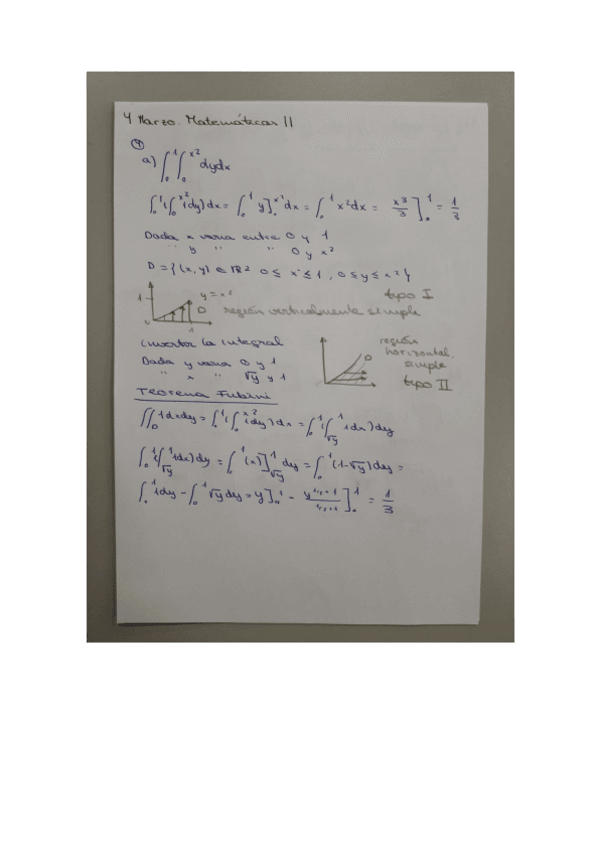 4 Marzo. Matemáticas II
④
a) ∫₀¹ ∫₀^x² dydx
∫₀¹ (∫₀^x² 1dy) dx = ∫₀¹ y]₀^x² dx = ∫₀¹ x² dx = x³/3 ]₀¹ = 1/3
Dada x varia entre 0 y 1
" y " " 0 y x²
D = {(x, y) ∈ ℝ² 0 ≤ x ≤ 1, 0 ≤ y ≤ x²}
1 y = x² D tipo I
0 1 región verticalmente simple
invertor la integral
Dada y varia 0 y 1
" x " √y y 1
D región
horizontal.
simple
tipo II
Teorema Fubini
∬_D 1dxdy = ∫₀¹ (∫₀^x² 1dy) dx = ∫₀¹ (∫_√y^1 1dx) dy
∫₀¹ (∫_√y^1 1dx) dy = ∫₀¹ (x)]_√y^1 dy = ∫₀¹ (1-√y) dy =
∫₀¹ 1dy - ∫₀¹ √y dy = y]₀¹ - y^(1/2+1)/(1/2+1) ]₀¹ = 1/3